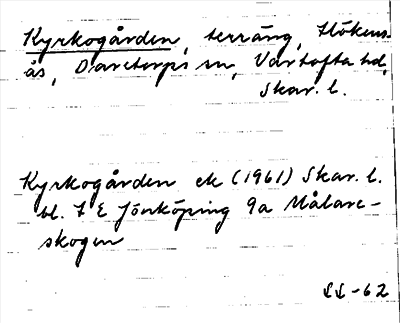 Kyrkogården, terräng, Hökens
ås, Daretorps sn, Vartofta hd,
Skar. l.
Kyrkogården ek (1961) Skar. l.
bl. 7 E Jönköping 9a Målare-
skogen
LL-62